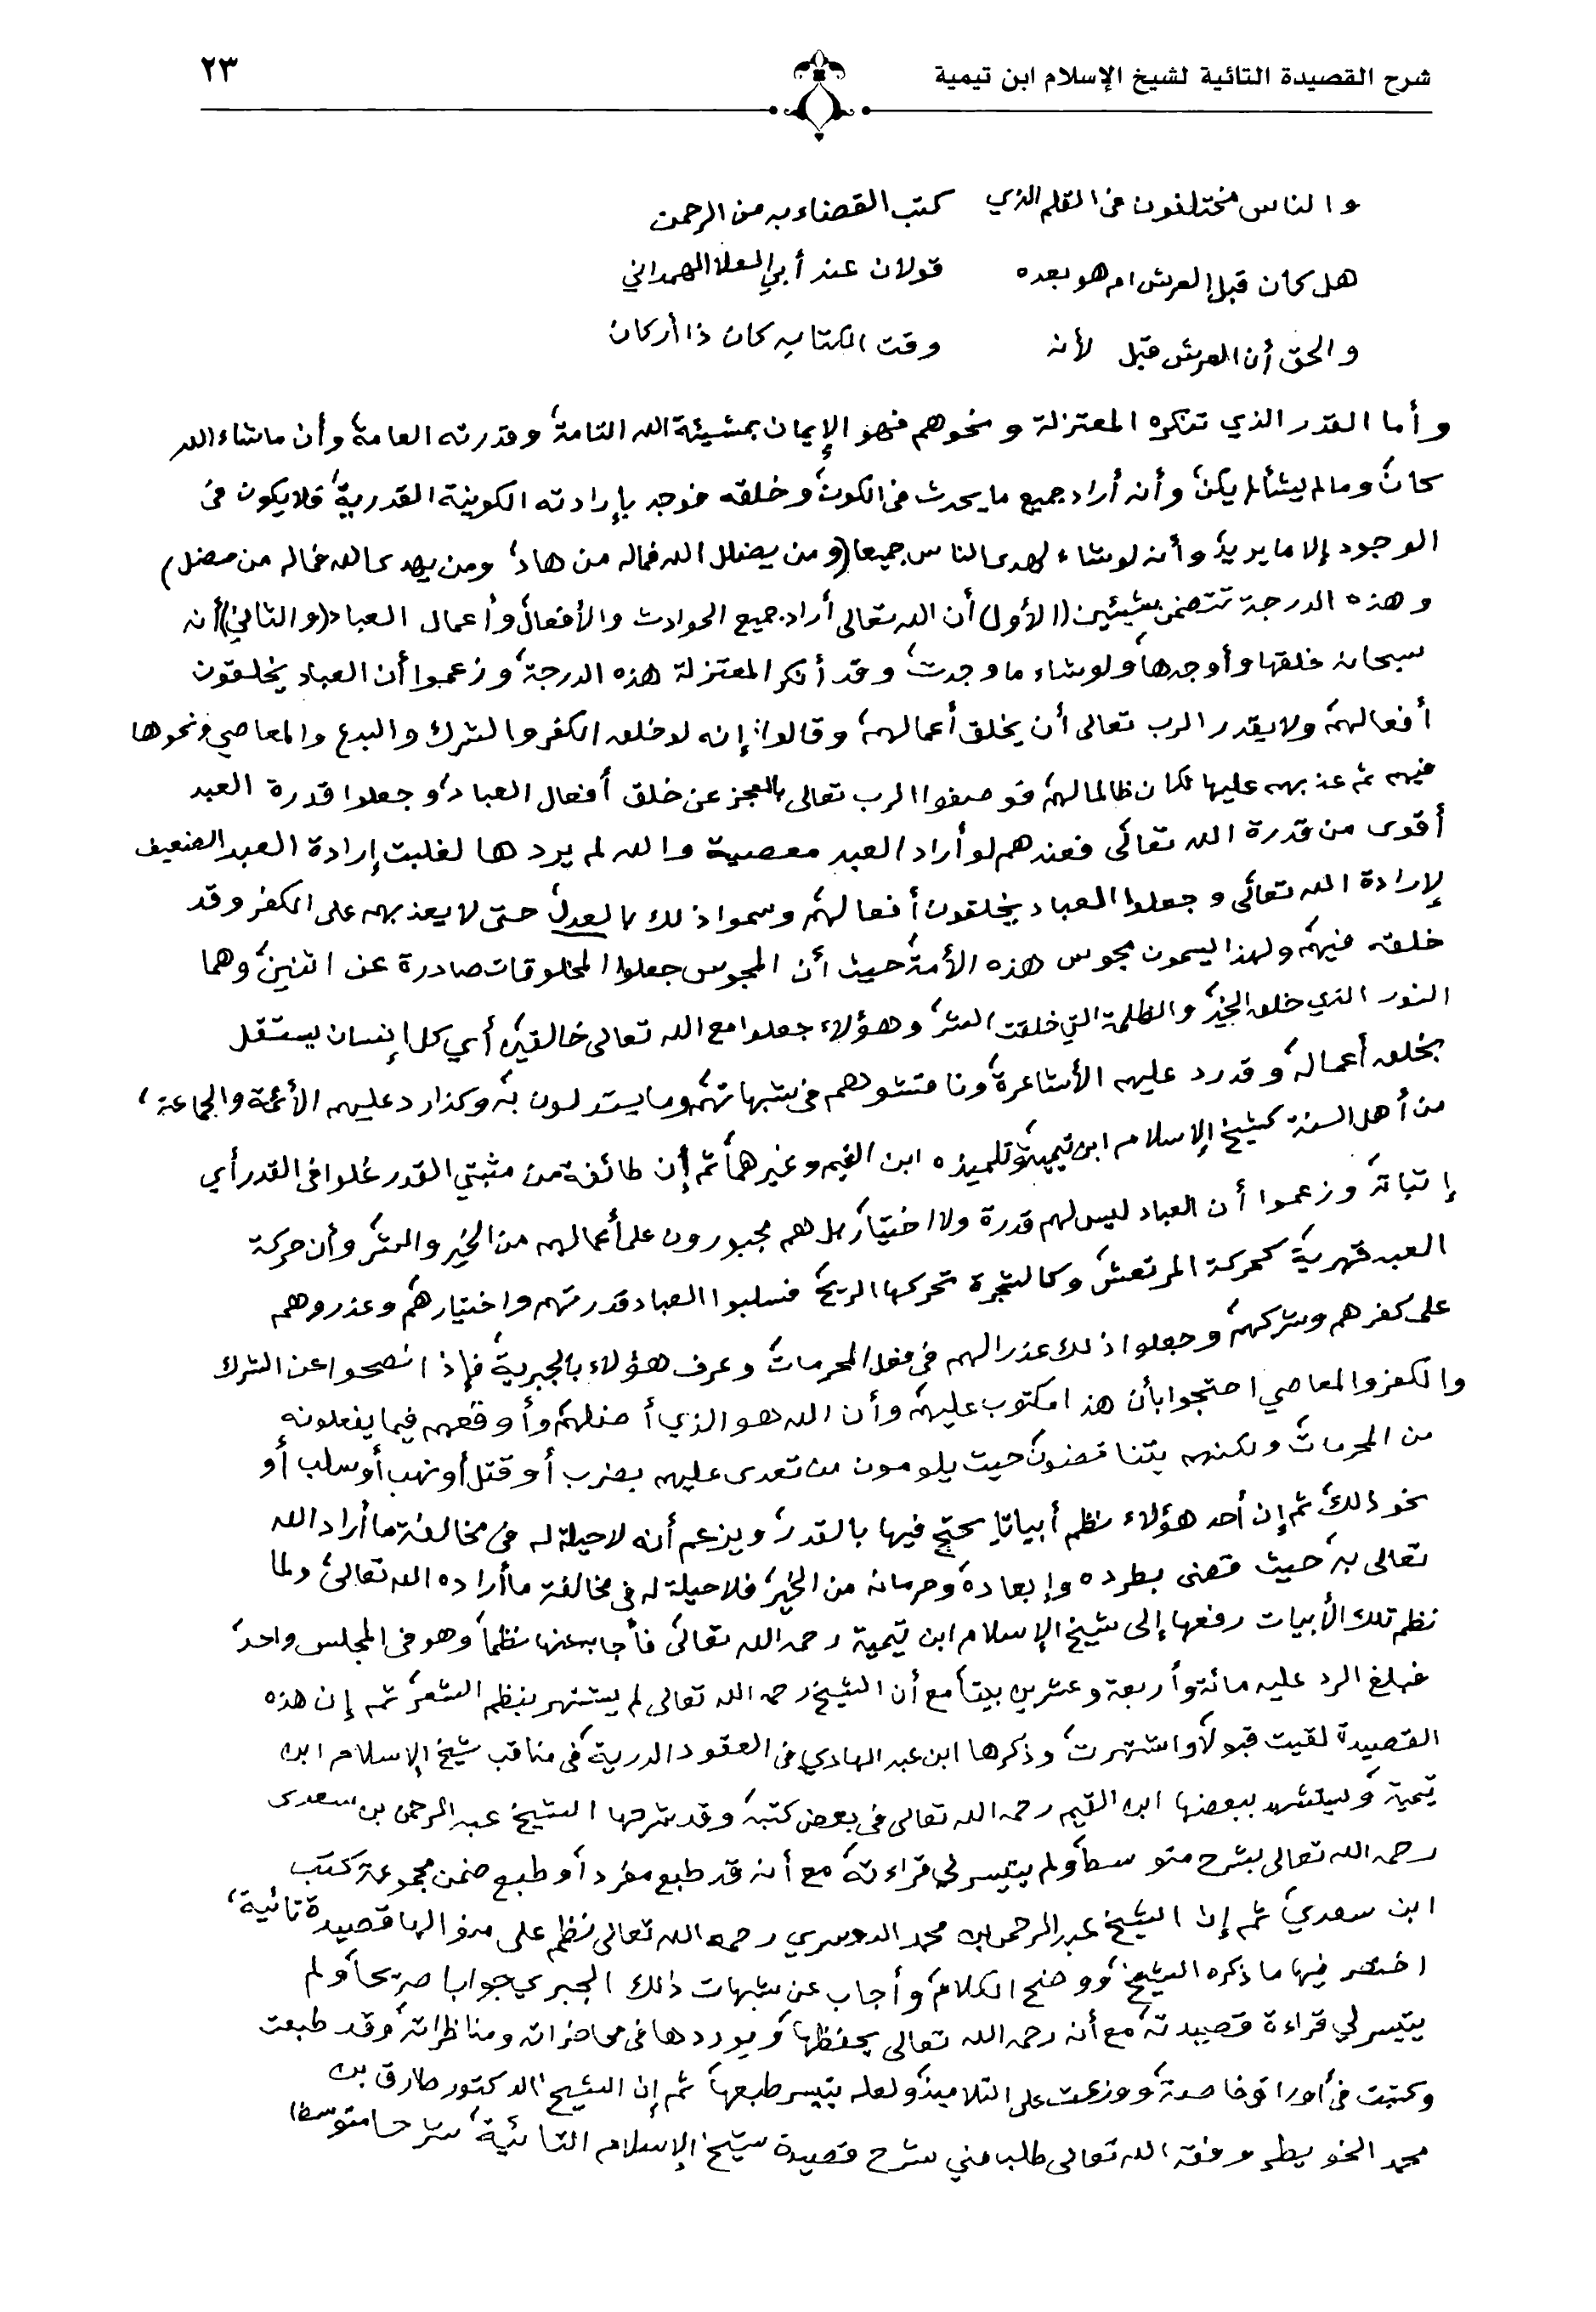 شرح القصيدة التائية لشيخ الإسلام ابن تيمية ٢٣
والناس مختلفون في القلم الذي كتب القضاء به من الرحمن
هل كان قبل العرش ام هو بعده قولان عند أبي العلا الهمداني
والحق أن العرش قبل لأنه وقت الكتابه كان ذا أركان
وأما القدر الذي تنكره المعتزلة ونحوهم فهو الإيمان بمشيئة الله التامة، وقدرته العامة، وأن ماشاء الله
كان، ومالم يشأ لم يكن، وأنه أراد جميع مايحدث في الكون، وخلقه فوجد بإرادته الكونية القدرية، فلا يكون في
الوجود إلا ما يريد، وأنه لو شاء لهدى الناس جميعا (ومن يضلل الله فماله من هاد، ومن يهدى الله فماله من مضل)
وهذه الدرجة تتضمن شيئين (الأول) أن الله تعالى أراد جميع الحوادث والأفعال، وأعمال العباد (والثاني) أنه
سبحانه خلقها وأوجدها، ولو شاء ما وجدت، وقد أنكر المعتزلة هذه الدرجة، وزعموا أن العباد يخلقون
أفعالهم، ولا يقدر الرب تعالى أن يخلق أعمالهم، وقالوا: إنه لو خلق الكفر والشرك والبدع والمعاصي ونحوها
فيهم ثم عذبهم عليها لكان ظالما لهم، فوصفوا الرب تعالى بالعجز عن خلق أفعال العباد، وجعلوا قدرة العبد
أقوى من قدرة الله تعالى، فعندهم لو أراد العبد معصية والله لم يردها لغلبت إرادة العبد الضعيف
لإرادة الله تعالى، وجعلوا العباد يخلقون أفعالهم، وسموا ذلك بالعدل، حتى لا يعذبهم على الكفر وقد
خلقه فيهم، ولهذا يسمون مجوس هذه الأمة، حيث أن المجوس جعلوا المخلوقات صادرة عن اثنين، وهما
النور الذي خلق الخير، والظلمة التي خلقت الشر، وهؤلاء جعلوا مع الله تعالى خالقين، أي كل إنسان يستقل
بخلق أعماله، وقد رد عليهم الأشاعرة، وناقشوهم في شبهاتهم، وما يستدلون به، وكذا رد عليهم الأئمة والجماعة،
من أهل السنة كشيخ الإسلام ابن تيمية، وتلميذه ابن القيم وغيرهما، ثم إن طائفة من مثبتي القدر غلوا في القدر أي
إثباته، وزعموا أن العباد ليس لهم قدرة ولا اختيار، بل هم مجبورون على أعمالهم من الخير والشر، وأن حركة
العبد قهرية، كحركة المرتعش، وكالشجرة تحركها الريح، فسلبوا العباد قدرتهم واختيارهم، وعذروهم
على كفرهم وشركهم، وجعلوا ذلك عذرا لهم في فعل المحرمات، وعرف هؤلاء بالجبرية، فإذا نصحوا عن الشرك
والكفر والمعاصي احتجوا بأن هذا مكتوب عليهم، وأن الله هو الذي أضلهم، وأوقعهم فيما يفعلونه
من المحرمات، ولكنهم يتناقضون، حيث يلومون من تعدى عليهم بضرب أو قتل أو نهب أو سلب أو
نحو ذلك، ثم إن أحد هؤلاء نظم أبياتا يحتج فيها بالقدر، ويزعم أنه لا حيلة له في مخالفة ما أراد الله
تعالى به، حيث قضى بطرده وإبعاده، وحرمانه من الخير، فلا حيلة له في مخالفة ما أراده الله تعالى، ولما
نظم تلك الأبيات رفعها إلى شيخ الإسلام ابن تيمية رحمه الله تعالى، فأجاب عنها نظما، وهو في المجلس واحد،
فبلغ الرد عليه مائة وأربعة وعشرين بيتا، مع أن الشيخ رحمه الله تعالى لم يشتهر بنظم الشعر، ثم إن هذه
القصيدة لقيت قبولا، واشتهرت، وذكرها ابن عبد الهادي في العقود الدرية، في مناقب شيخ الإسلام ابن
تيمية، ويستشهد ببعضها ابن القيم رحمه الله تعالى في بعض كتبه، وقد شرحها الشيخ عبد الرحمن بن سعدى
رحمه الله تعالى بشرح متوسط، ولم يتيسر لي قراءته، مع أنه قد طبع مفردا، وطبع ضمن مجموعة كتب
ابن سعدي، ثم إن الشيخ عبد الرحمن بن محمد الدوسري رحمه الله تعالى نظم على منوالها قصيدة تائية،
اختصر فيها ما ذكره الشيخ، ووضح الكلام، وأجاب عن شبهات ذلك الجبري جوابا صريحا، ولم
يتيسر لي قراءة قصيدته، مع أنه رحمه الله تعالى يحفظها، ويوردها في محاضراته ومناظراته، وقد طبعت
وكتبت في أوراق خاصة، ووزعت على التلاميذ، ولعله يتيسر طبعها، ثم إن الشيخ الدكتور طارق بن
محمد الخويطر وفقه الله تعالى طلب مني شرح قصيدة شيخ الإسلام التائية، شرحا متوسطا